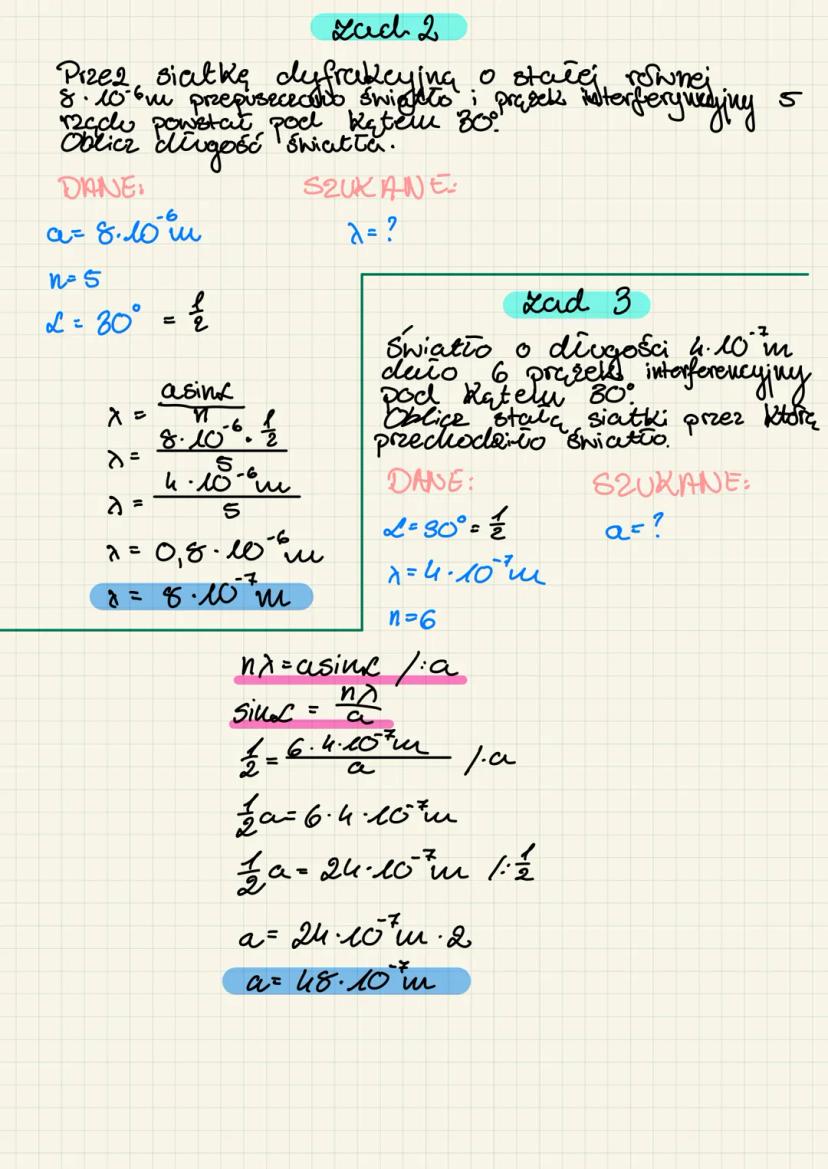 zad 2
Przez siatkę dyfrakcyjną o stałej równej
8·10⁻⁶m przepuszczono światło i prążek interferyncyjny 5
rzędu powstał pod kątem 30°.
Oblicz długość światła.
DANE:
SZUKANE:
a= 8·10⁻⁶m
λ= ?
n= 5
α = 30° = 1/2
λ = asinα/n
λ= 8·10⁻⁶·1/2/5
λ = 4·10⁻⁶m/5
λ = 0,8·10⁻⁶m
λ = 8·10⁻⁷m
zad 3
Światło o długości 4·10⁻⁷m
dało 6 prążek interferencyjny
pod kątem 30°.
Oblicz stałą siatki przez którą
przechodziło światło.
DANE:
SZUKANE:
α=30°=1/2
a=?
λ=4·10⁻⁷m
n=6
nλ=asinα /:a
sinα = nλ/a
1/2 = 6·4·10⁻⁷m/a /·a
1/2a= 6·4·10⁻⁷m
1/2a= 24·10⁻⁷m /:1/2
a= 24·10⁻⁷m·2
a= 48·10⁻⁷m